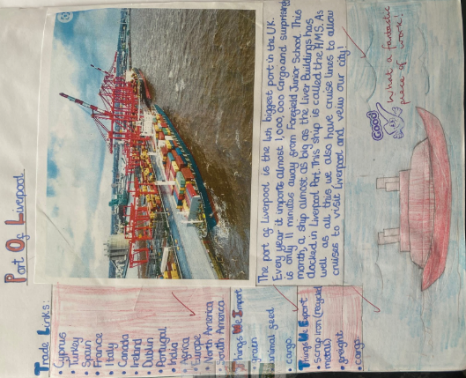 Port Of Liverpool
Trade Links:
• Cyprus
• Turkey
• Spain
• France
• Italy
• Canada
• Ireland
• Dublin
• Portugal
• India
• Africa
• Europe
• North America
• South America
Things We Import
• grain
• animal feed
• cargo
Things We Export
• scrap iron (recycled
metals)
• freight
• cargo
The port of Liverpool is the biggest port in the UK.
Every year it imports almost 1,000,000 cargo and surprising
is only 11 minutes away from Junior School. This
month, a ship almost as big as the Liver Buildings has
docked in Liverpool Port. This ship is called the HMS. As
well as all this we also have cruise lines to allow
cruises to visit Liverpool and veiw our city!
Good
What a fantastic
piece of work!